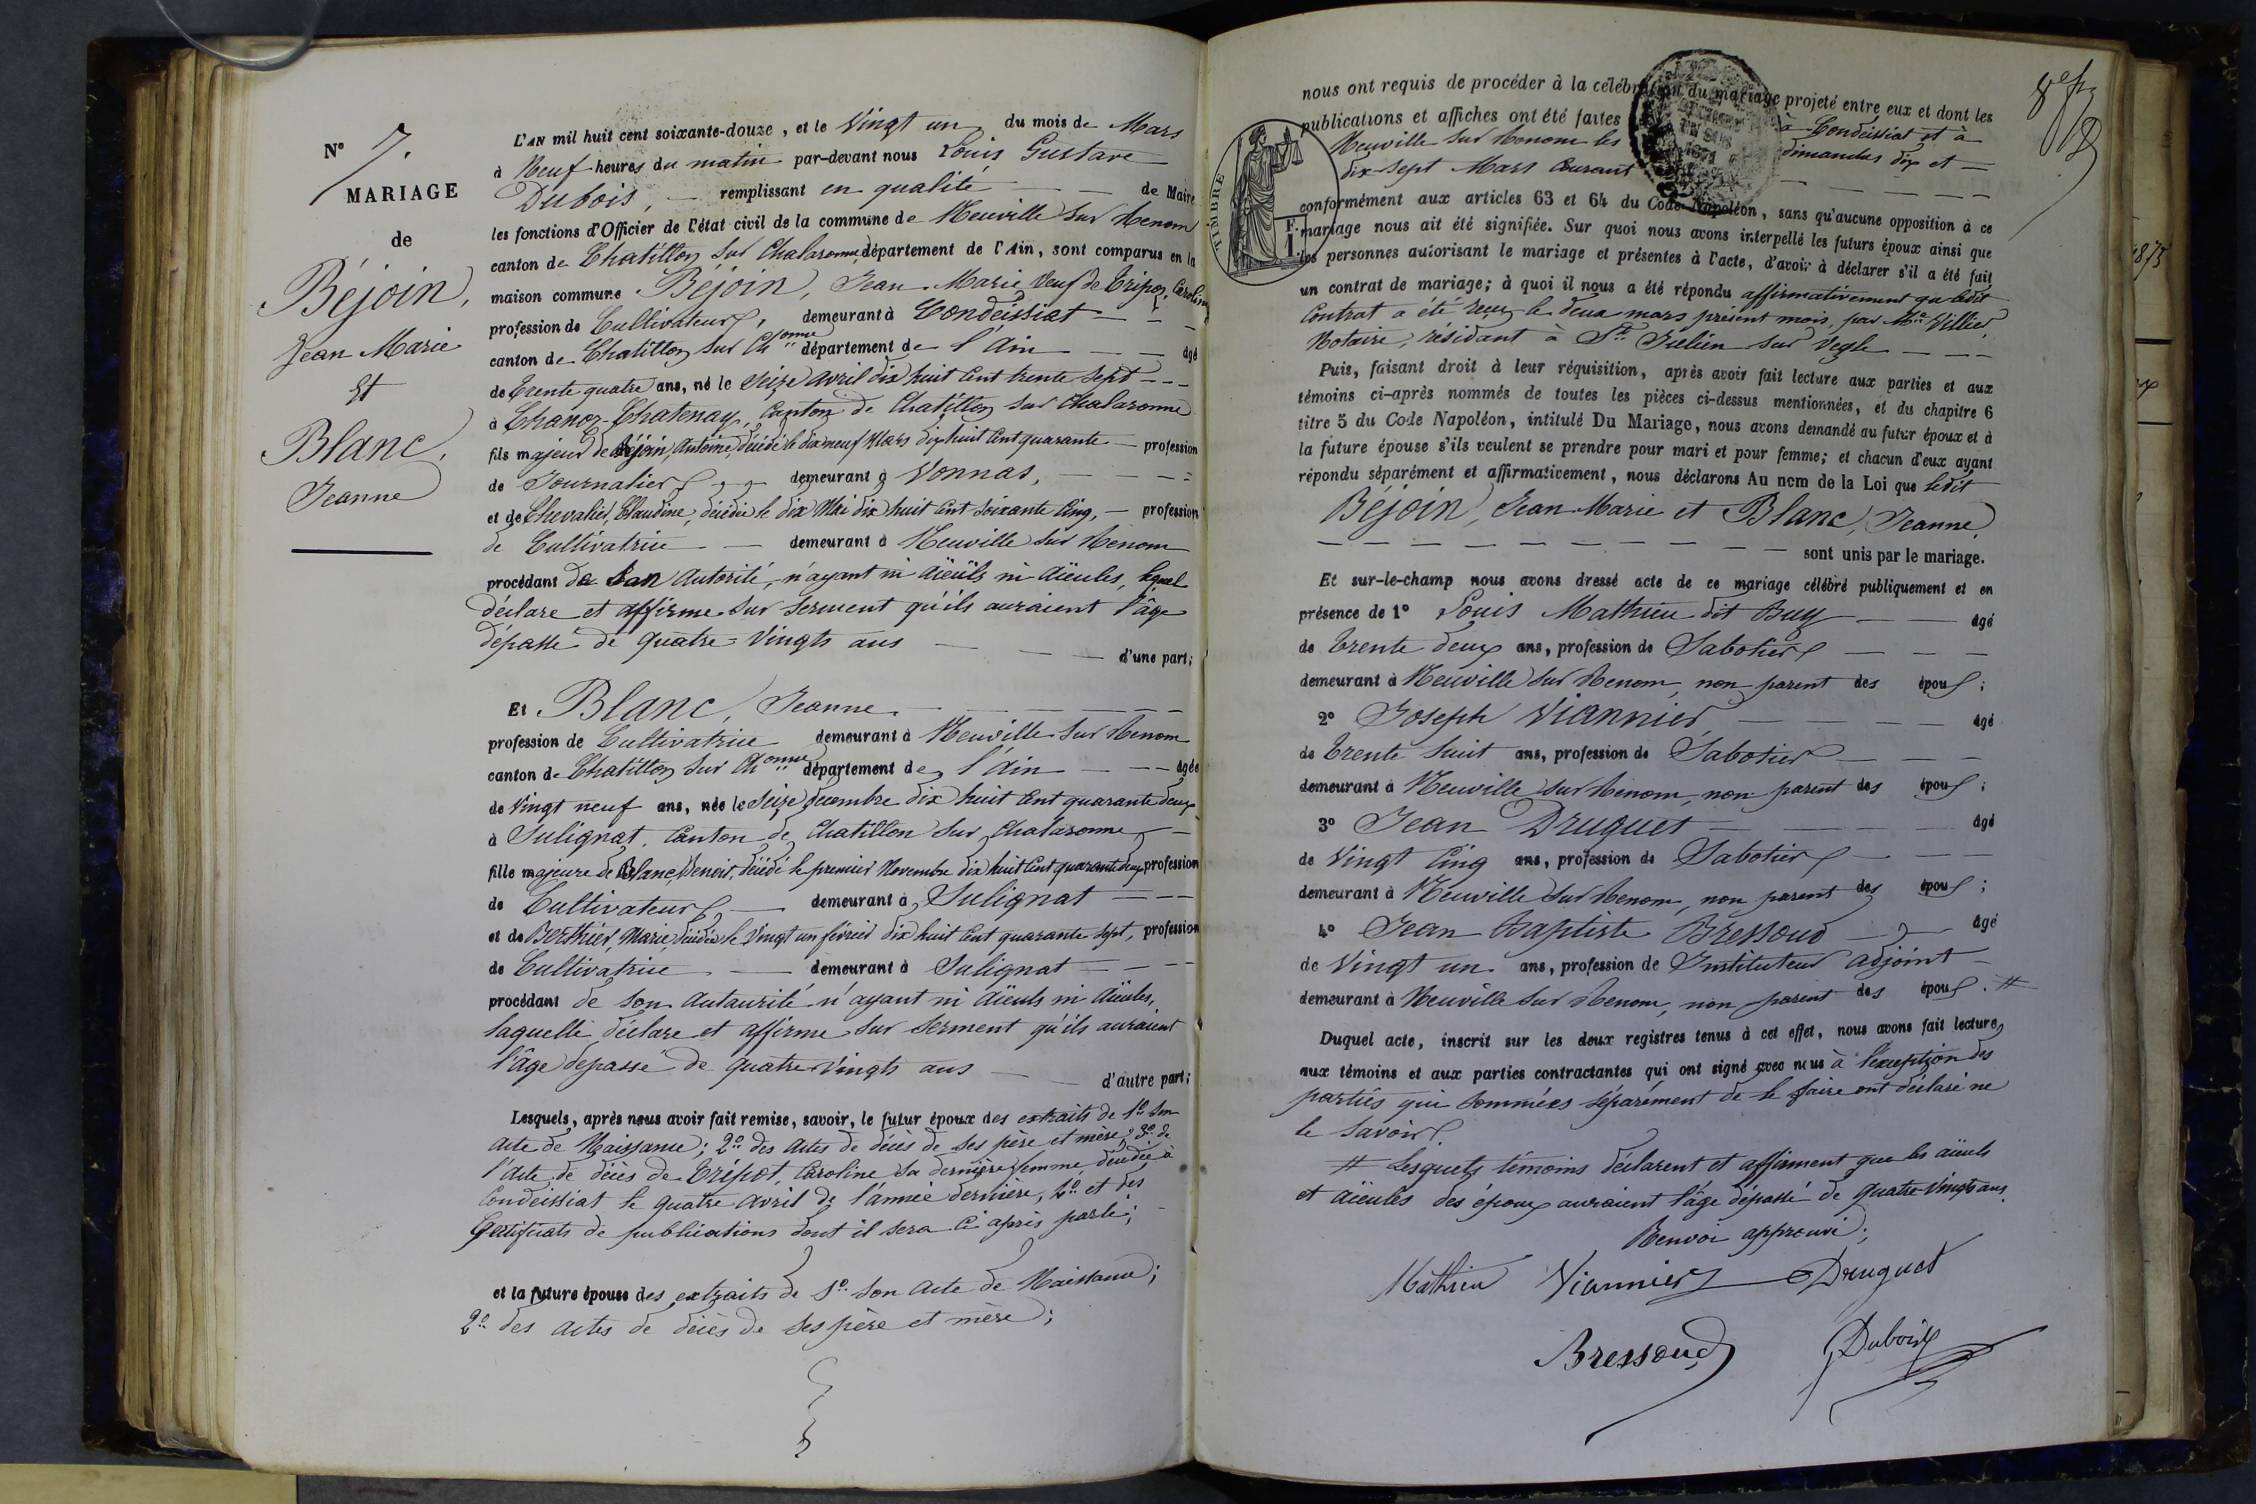 N° 7.
MARIAGE
de
Béjoin,
Jean Marie
Et
Blanc,
Jeanne
L'AN mil huit cent soixante-douze, et le Vingt un du mois de Mars
à Neuf heures du matin par-devant nous Louis Gustave
Dubois, — remplissant en qualité — — de Maire
les fonctions d'Officier de l'état civil de la commune de Neuville sur Renom
canton de Chatillon sur Chalaronne, département de l'Ain, sont comparus en la
maison commune Béjoin, Jean Marie Veuf de Tripoz, Caroline
profession de Cultivateur, demeurant à Condeissiat — — —
canton de Chatillon sur Ch onne département de l'Ain — — âgé
de Trente quatre ans, né le seize avril dix huit cent trente sept — — —
à Chanoz-Chatenay, Canton de Chatillon sur Chalaronne
fils majeur de Béjoin, Antoine, décédé le dix neuf Mars dix huit cent quarante — profession
de Journalier demeurant à Vonnas, — — =
et de Chevalier, Claudine, décédée le dix Mai dix huit cent soixante cinq, — profession
de Cultivatrice — demeurant à Neuville sur Renom
procédant de son autorité, n'ayant ni aïeuls ni aïeules, lequel
déclare et affirme sur serment qu'ils auraient l'âge
dépassé de quatre-Vingts ans — — — d'une part;
Et Blanc, Jeanne. — — — — — —
profession de Cultivatrice demeurant à Neuville sur Renom
canton de Chatillon sur Ch onne département de l'Ain — — — âgée
de Vingt neuf ans, née le seize décembre dix huit cent quarante deux
à Sulignat, Canton de Chatillon sur Chalaronne —
fille majeure de Blanc, Benoit, décédé le premier Novembre dix huit cent quarante deux profession
de Cultivateur — demeurant à Sulignat — — —
et de Berthier, Marie, décédée le Vingt un février dix huit cent quarante sept, profession
de Cultivatrice — demeurant à Sulignat — — —
procédant de son autaurité n'ayant ni aïeuls ni aïeules,
laquelle déclare et affirme sur serment qu'ils auraient
l'âge depassé de quatre-vingts ans — — d'autre part;
Lesquels, après nous avoir fait remise, savoir, le futur époux des extraits de 1° son
acte de Naissance; 2° des actes de décès de ses père et mère, 3° de
l'acte de décès de Tripot, Caroline sa dernière femme, décédée à
Condeissiat le quatre avril de l'année dernière, 4° et des
Certificats de publications dont il sera ci après parlé;
et la future épouse des extraits de 1° son acte de Naissance;
2° des actes de décès de ses père et mère;
nous ont requis de procéder à la célébration du mariage projeté entre eux et dont les
publications et affiches ont été faites à Condeissiat et à
Neuville sur Renom les dimanches dix et —
dix-sept Mars Courant — — — —
TIMBRE
conformément aux articles 63 et 64 du Code Napoléon, sans qu'aucune opposition à ce
mariage nous ait été signifiée. Sur quoi nous avons interpellé les futurs époux ainsi que
les personnes autorisant le mariage et présentes à l'acte, d'avoir à déclarer s'il a été fait
un contrat de mariage; à quoi il nous a été répondu affirmativement que ledit
Contrat a été reçu le deux mars présent mois, par Me Villier
Notaire, résidant à St Julien sur Vesle — — —
Puis, faisant droit à leur réquisition, après avoir fait lecture aux parties et aux
témoins ci-après nommés de toutes les pièces ci-dessus mentionnées, et du chapitre 6
titre 5 du Code Napoléon, intitulé Du Mariage, nous avons demandé au futur époux et à
la future épouse s'ils veulent se prendre pour mari et pour femme; et chacun d'eux ayant
répondu séparément et affirmativement, nous déclarons Au nom de la Loi que ledit
Béjoin, Jean-Marie et Blanc, Jeanne,
— — — — — — — — — — sont unis par le mariage.
Et sur-le-champ nous avons dressé acte de ce mariage célébré publiquement et en
présence de 1° Louis Mathieu dit Buy — — âgé
de Trente deux ans, profession de Sabotier — — —
demeurant à Neuville sur Renom, non parent des époux;
2° Joseph Viannier — — — — âgé
de Trente huit ans, profession de Sabotier — — —
demeurant à Neuville sur Renom, non parent des époux;
3° Jean Druguet — — — — âgé
de Vingt cinq ans, profession de Sabotier — — —
demeurant à Neuville sur Renom, non parent des époux;
4° Jean Baptiste Bressoud — — âgé
de Vingt un ans, profession de Instituteur adjoint —
demeurant à Neuville sur Renom, non parent des époux. #
Duquel acte, inscrit sur les deux registres tenus à cet effet, nous avons fait lecture
aux témoins et aux parties contractantes qui ont signé avec nous à l'exception des
parties qui sommées séparément de le faire ont déclaré ne
le savoir.
# Lesquels témoins déclarent et affirment que les aïeuls
et aïeules des époux auraient l'âge dépassé de quatre-vingts ans.
Renvoi approuvé;
Mathieu Viannier Druguet
Bressoud Dubois